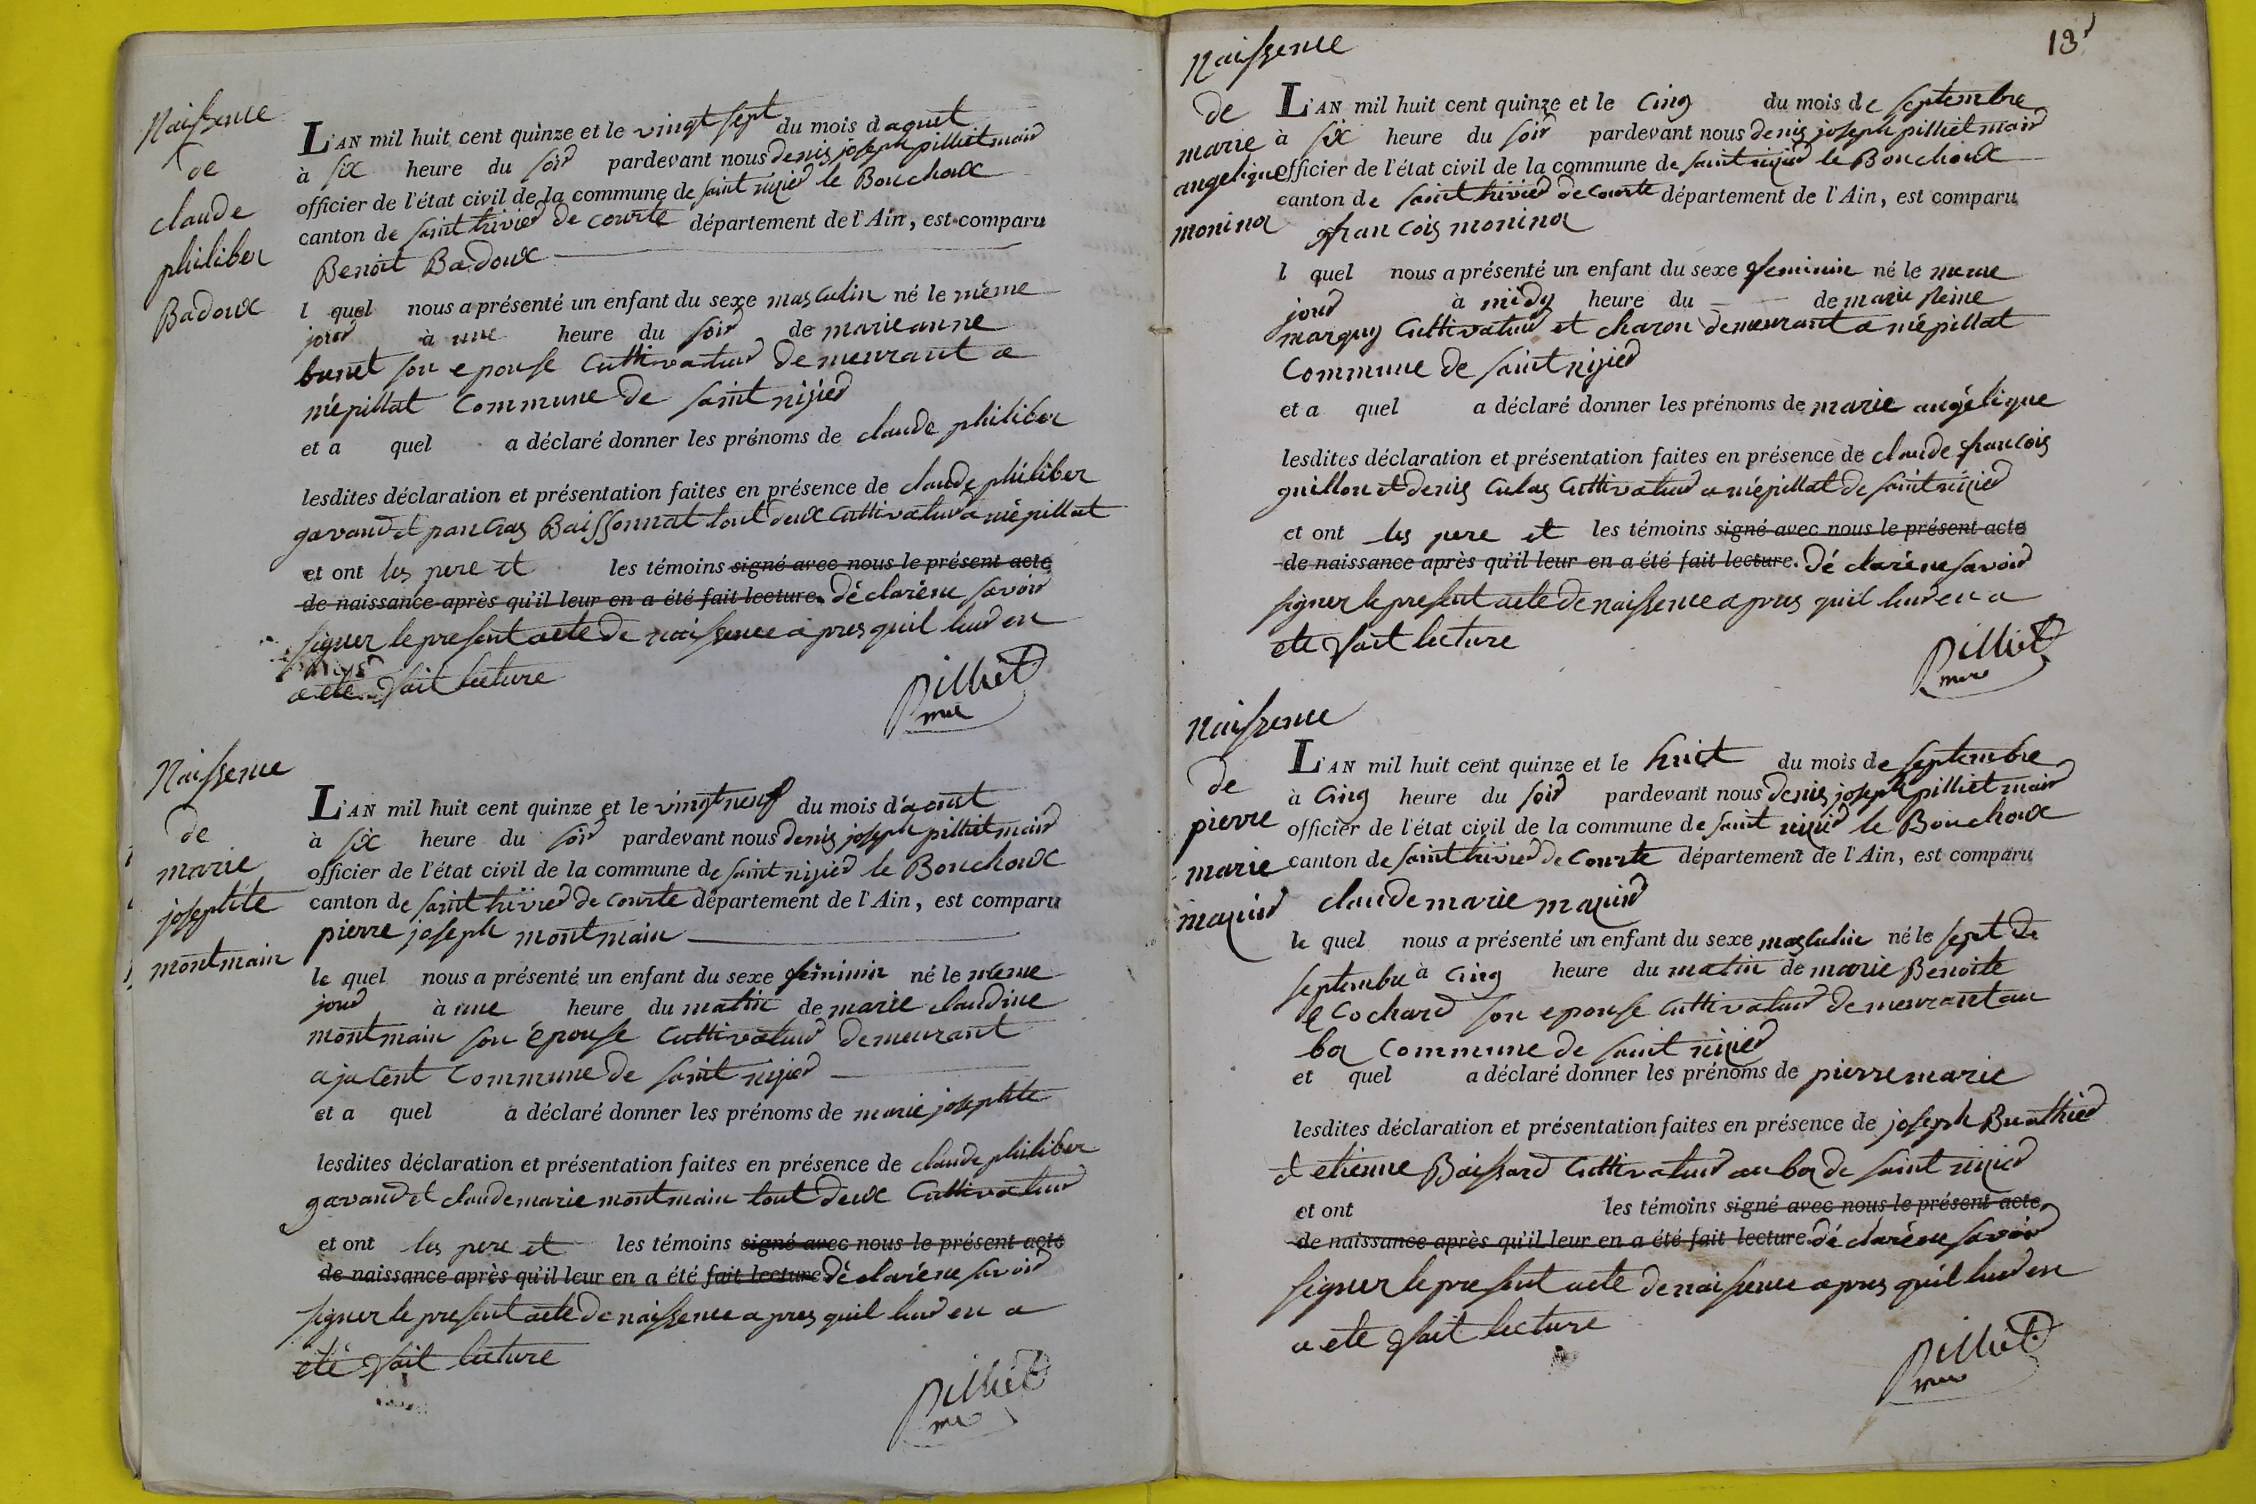 Naissence
de
claude
philiber
Badoux
L'AN mil huit cent quinze et le vingt sept du mois d aout
à six heure du soir pardevant nous denis joseph pilliet maire
officier de l'état civil de la commune de saint nizier le Bouchoux
canton de saint trivier de courte département de l'Ain, est comparu
Benoit Badoux
l quel nous a présenté un enfant du sexe masculin né le même
jour à une heure du soir de marie anne
bunet son epouse cultivateur demeurant a
népillat commune de saint nizier
et a quel a déclaré donner les prénoms de claude philiber
lesdites déclaration et présentation faites en présence de claude philiber
gavand et pancras Baissonnat tout deux cultivateur a népillat
et ont les pere et les témoins signé avec nous le présent acte
de naissance après qu'il leur en a été fait lecture. déclaré ne savoir
signer le present acte de naissence apres quil leur en
a eté fait lecture
Pilliet
mre
Naissence
de
marie
josephte
montmain
L'AN mil huit cent quinze et le vingt neuf du mois d'aout
à six heure du soir pardevant nous denis joseph pilliet maire
officier de l'état civil de la commune de saint nizier le Bouchoux
canton de saint trivier de courte département de l'Ain, est comparu
pierre joseph montmain
le quel nous a présenté un enfant du sexe féminin né le même
jour à une heure du matin de marie claudine
montmain son épouse cultivateur demeurant
a jacent commune de saint nizier
et a quel a déclaré donner les prénoms de marie josephte
lesdites déclaration et présentation faites en présence de claude philiber
gavand et claude marie montmain tout deux cultivateur
et ont les pere et les témoins signé avec nous le présent acte
de naissance après qu'il leur en a été fait lecture déclaré ne savoir
signer le present acte de naissence apres quil leur en a
eté fait lecture
Pilliet
mre
13
Naissence
de
marie
angelique
monind
L'AN mil huit cent quinze et le cinq du mois de septembre
à six heure du soir pardevant nous denis joseph pilliet maire
officier de l'état civil de la commune de saint nizier le Bouchoux
canton de saint trivier de courte département de l'Ain, est comparu
francois monind
l quel nous a présenté un enfant du sexe feminin né le meme
jour à midy heure du de marie Reine
marguy cultivateur et charon demeurant a népillat
Commune de saint nizier
et a quel a déclaré donner les prénoms de marie angélique
lesdites déclaration et présentation faites en présence de claude francois
guillon et denis culas cultivateur a népillat de saint nizier
et ont les pere et les témoins signé avec nous le présent acte
de naissance après qu'il leur en a été fait lecture. déclaré ne savoir
signer le present acte de naissence apres quil leur en a
eté fait lecture
Pilliet
mre
Naissence
de
pierre
marie
mazuir
L'AN mil huit cent quinze et le huit du mois de septembre
à cinq heure du soir pardevant nous denis joseph pilliet maire
officier de l'état civil de la commune de saint nizier le Bouchoux
canton de saint trivier de courte département de l'Ain, est comparu
claude marie mazuir
le quel nous a présenté un enfant du sexe masculin né le sept de
septembre à cinq heure du matin de marie Benoite
Cochard son epouse cultivateur demeurant au
boz commune de saint nizier
et quel a déclaré donner les prénoms de pierre marie
lesdites déclaration et présentation faites en présence de joseph Buathier
et etienne Baissard cultivateur au boz de saint nizier
et ont les témoins signé avec nous le présent acte
de naissance après qu'il leur en a été fait lecture déclaré ne savoir
signer le present acte de naissence apres quil leur en
a eté fait lecture
Pilliet
mre